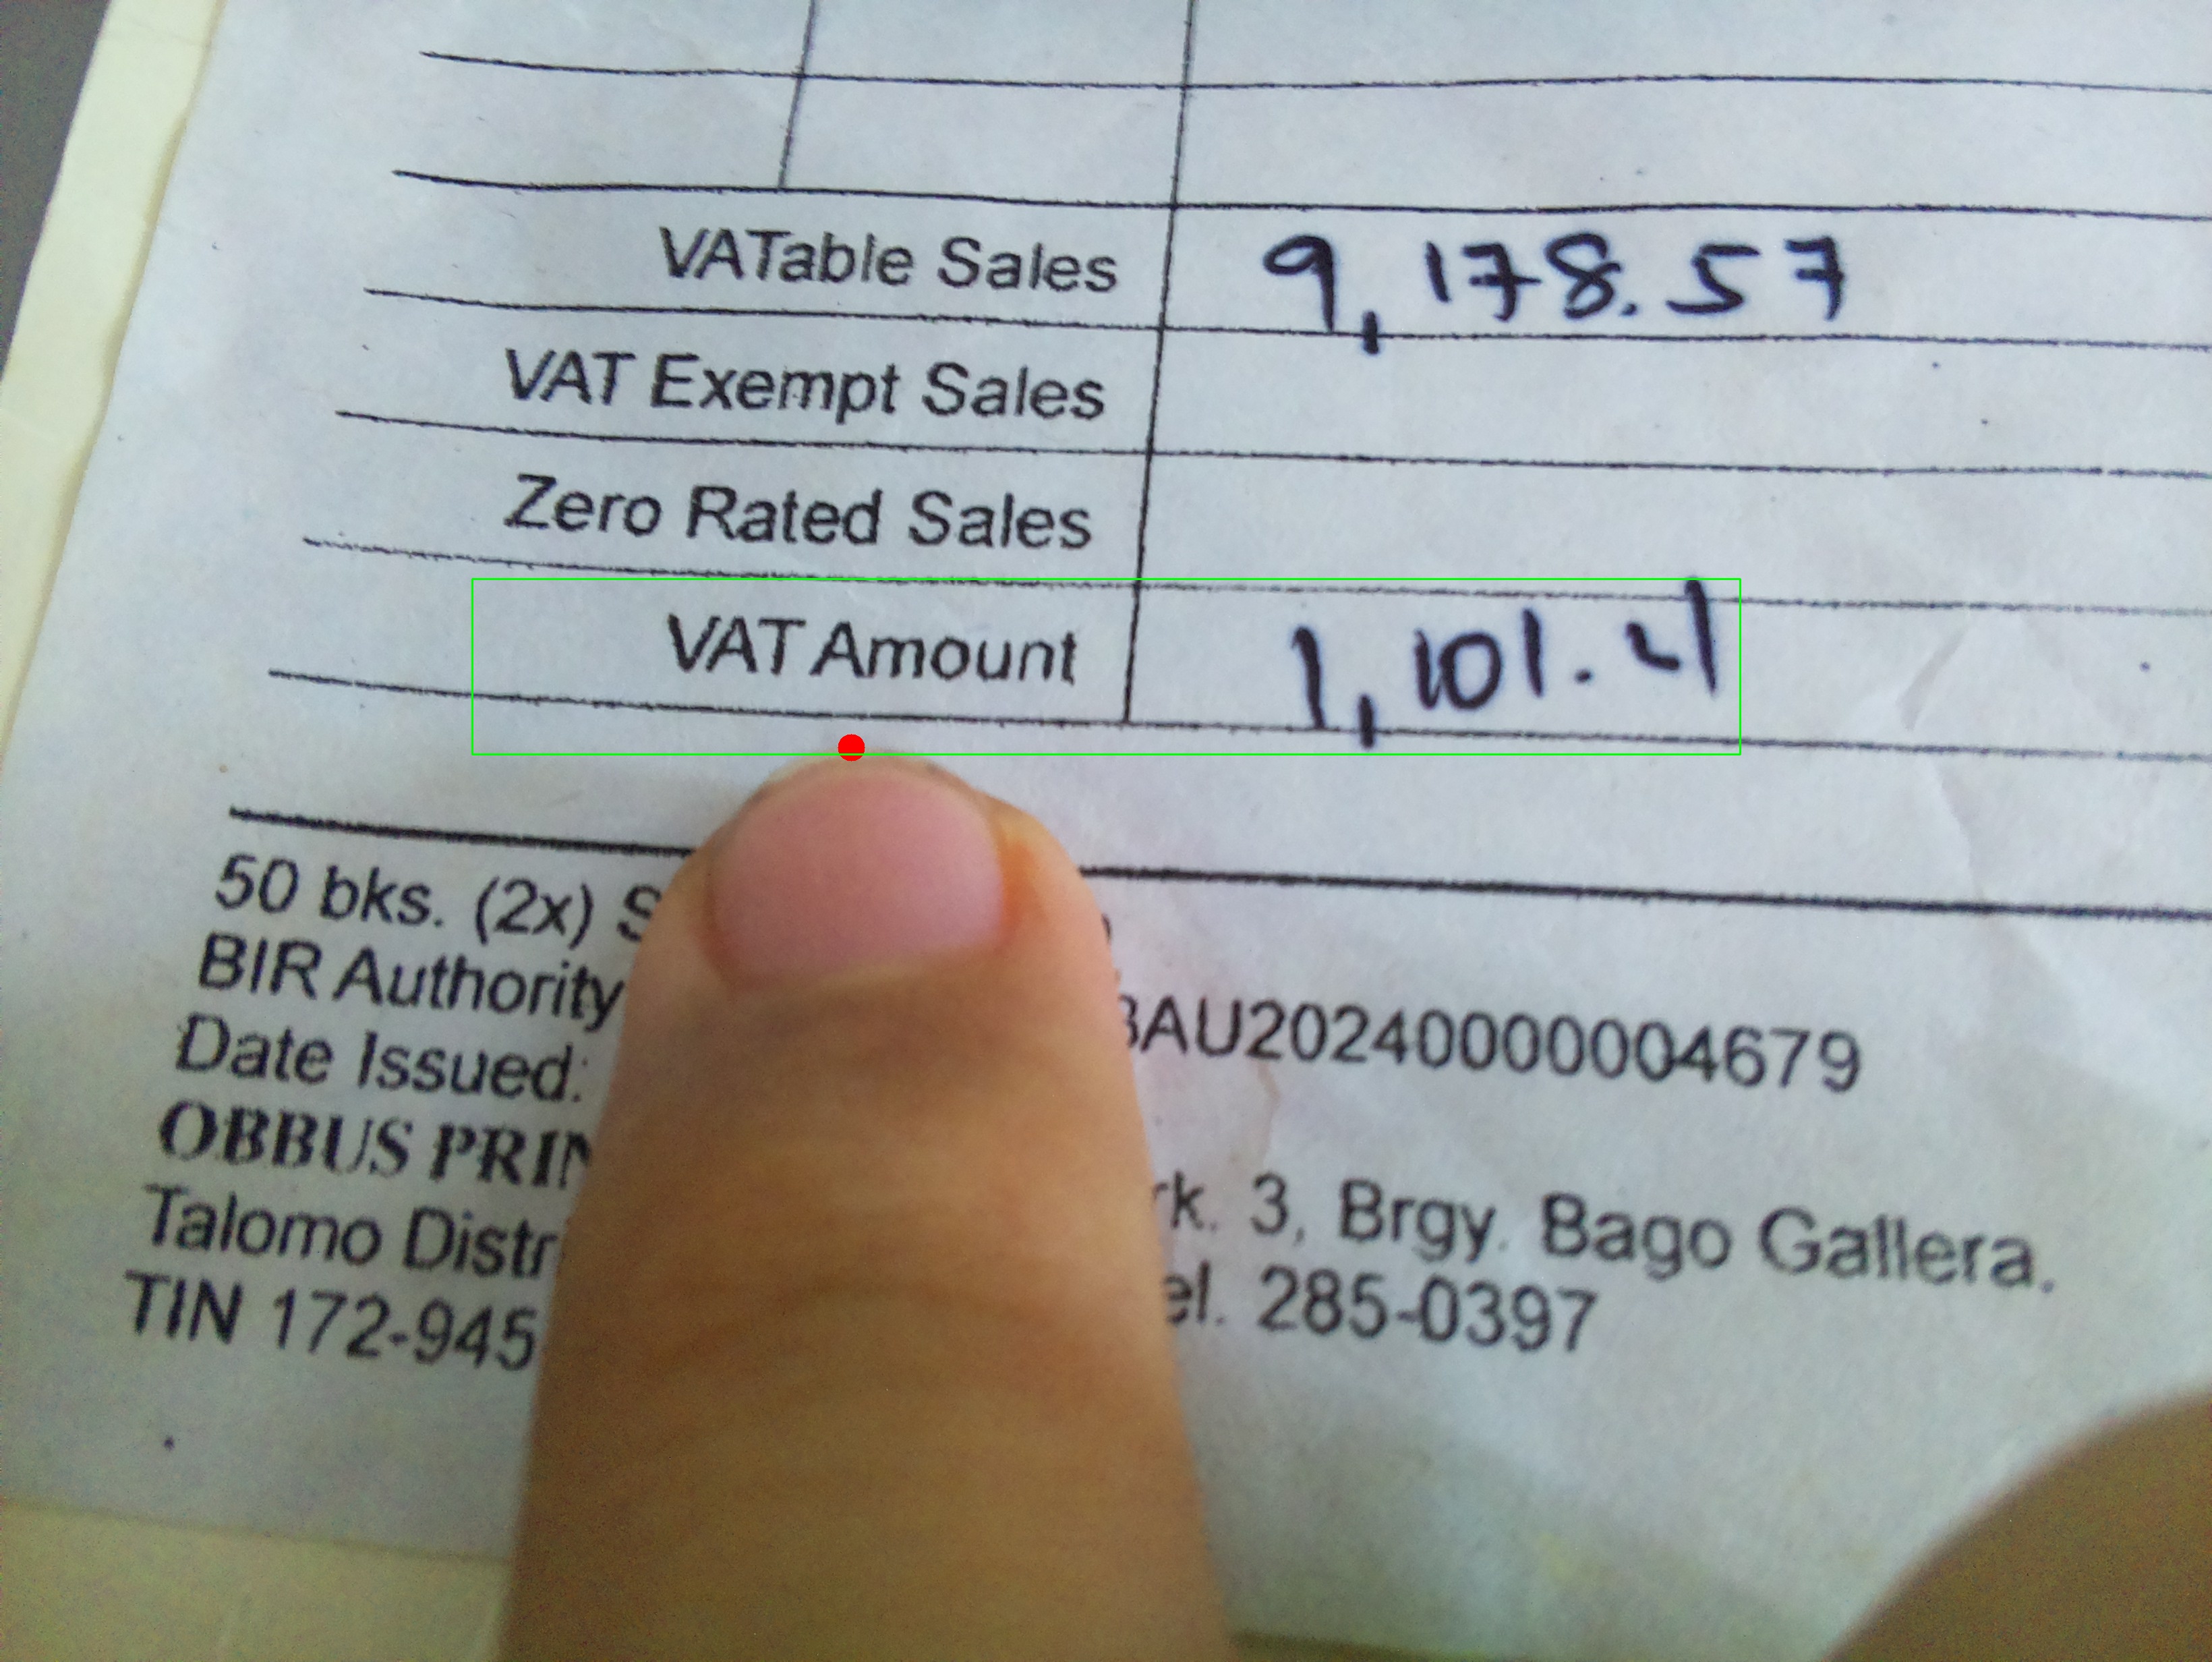 VATable Sales 9,178.57
VAT Exempt Sales
Zero Rated Sales
VAT Amount 1,101.4
50 bks. (2x)
BIR Authority AU20240000004679
Date Issued:
OBBUS PRIN
Talomo Distr rk. 3, Brgy. Bago Gallera.
TIN 172-945 el. 285-0397